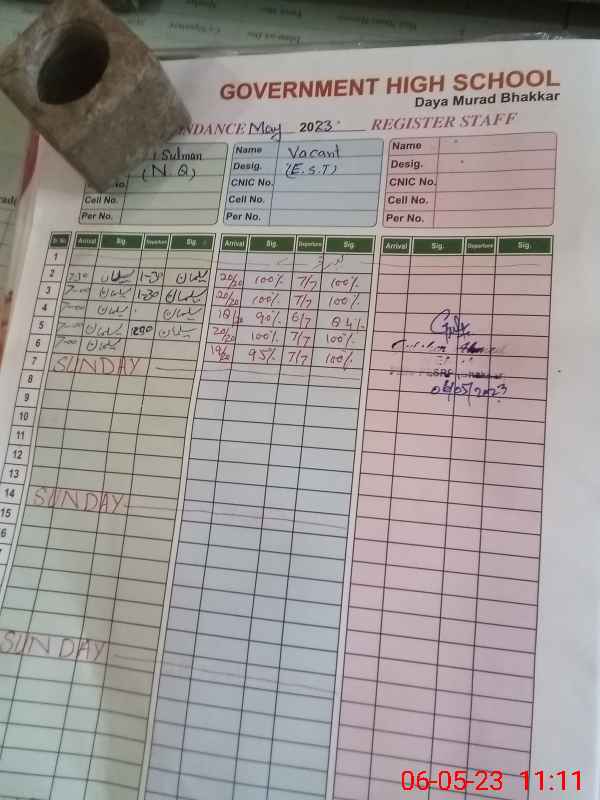 GOVERNMENT HIGH SCHOOL
Daya Murad Bhakkar
NDANCE May 2023 REGISTER STAFF
Sulman Name Vacant Name
(N.Q) Desig. (E.S.T) Desig.
No. CNIC No. CNIC No.
Cell No. Cell No. Cell No.
Per No. Per No. Per No.
Sr. No Arrival Sig. Departure Sig. Arrival Sig. Departure Sig. Arrival Sig. Departure Sig.
1
2 7:30 1-30 20/20 100% 7/7 100%
3 7:00 1-30 20/20 100% 7/7 100%
4 7:00 18/20 90% 6/7 84%
5 7:00 1230 20/20 100% 7/7 100%
6 7:00 19/20 95% 7/7 100%
7 SUNDAY
8 06/05/2023
9
10
11
12
13
14 SUNDAY
15
6
SUNDAY
06-05-23 11:11